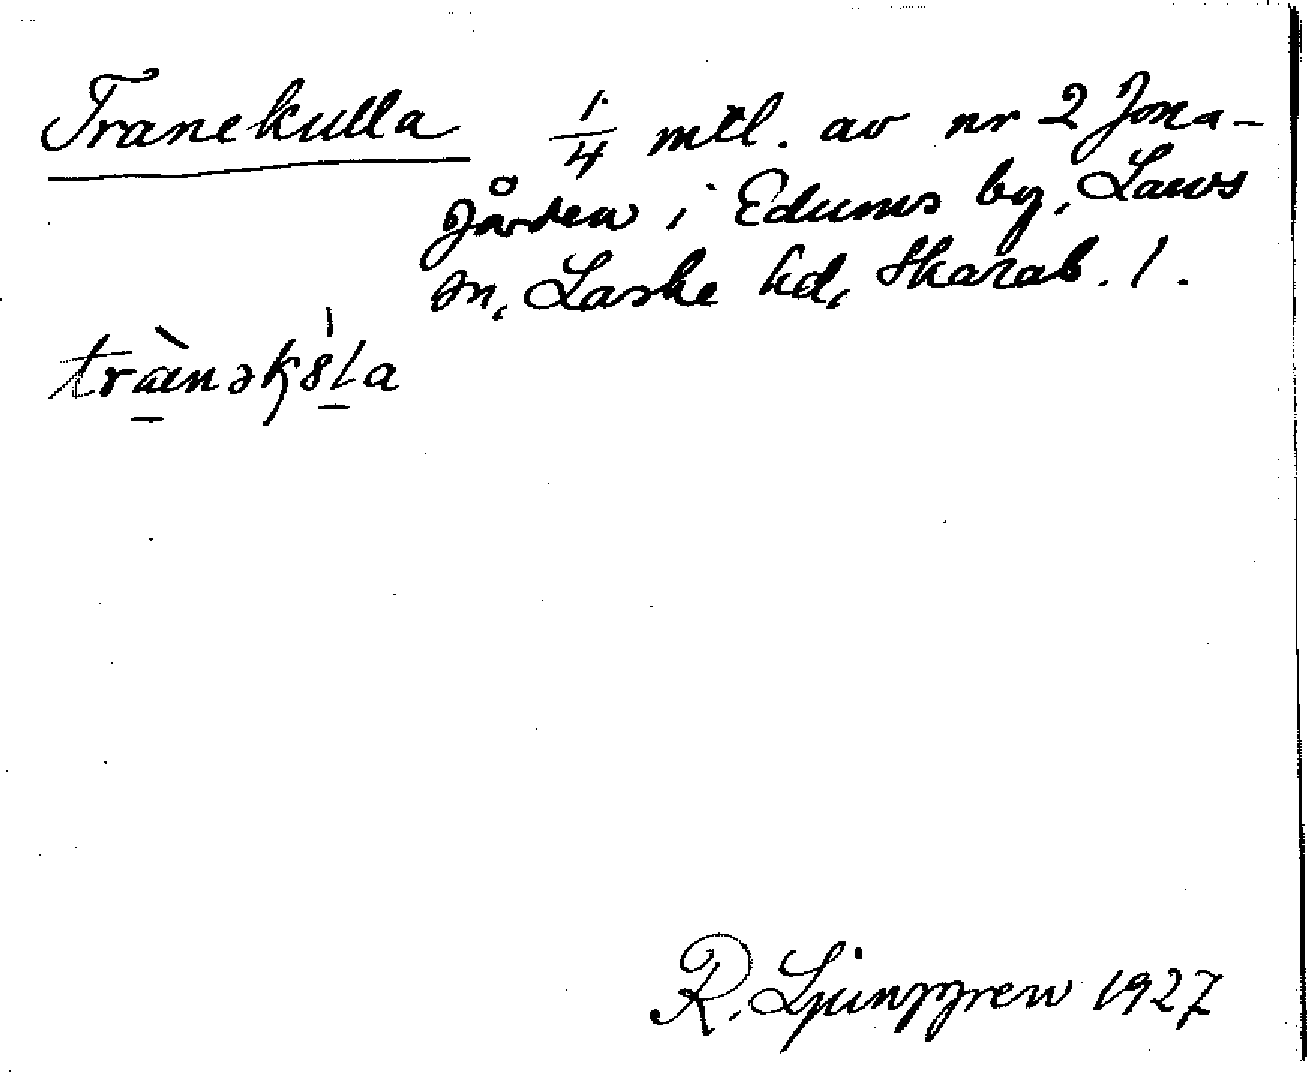 Tranekulla 1/4 mtl. av nr 2 Jona-
gården i Edums by, Lavs
sn, Laske hd, Skarab. l.
trànək8la
R. Ljunggren 1927